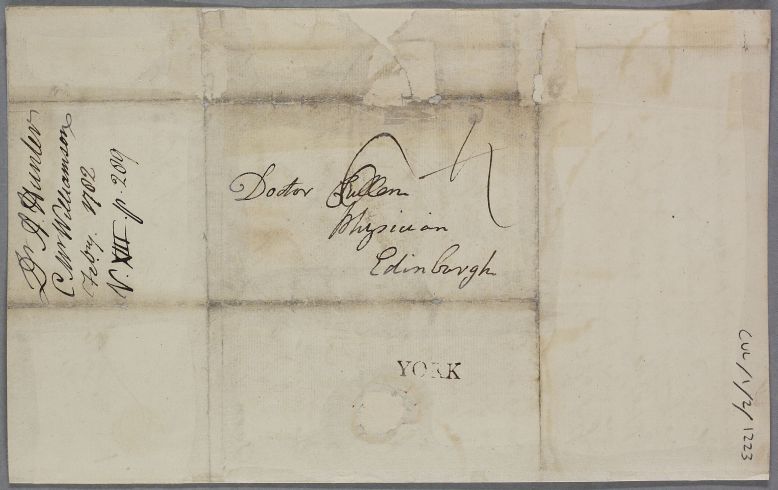 Dr A Hunter
C Mr Williamson
Febry. 1782
N. XIII p. 209
Doctor Cullen
Physician
Edinburgh
YORK
CUL/1/2/1223